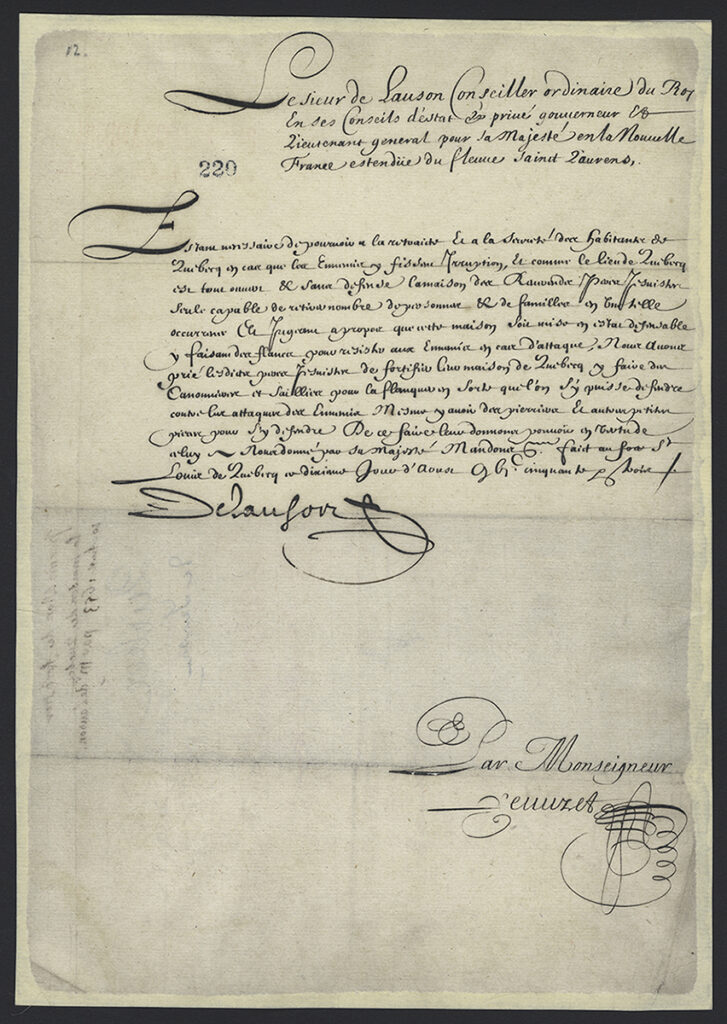 12.
Le sieur de Lauson Conseiller ordinaire du Roy
En ses Conseils d'estat & privé gouverneur &
Lieutenant general pour sa Majesté en la Nouvelle
France estendüe du fleuve sainct Laurens,.
220
Estant necessaire de pourvoir a la retraicte Et a la seureté des habitants de
Quebecq en cas que les Ennemis y fissent Irruption, Et comme le lieu de Quebecq
est tout ouvert & sans defense la maison des Reverends Peres Jesuistes
seule capable de retirer nombre de personnes & de familles en une telle
occurrence Et Jugeant a propos que cette maison soit mise en estat defensable
y faisant des flancs pour resister aux Ennemis en cas d'attaque, Nous avons
prié lesdicts peres Jesuistes de fortifier leur maison de Quebecq y faire des
Canonnieres et saillies pour la flanquer en sorte quel'on s'y puisse defendre
contre les attaques des Ennemis Mesme y avoir des pierriers Et autres petites
pieces pour s'y defendre De ce faire leur donnons pouvoir en vertu de
celuy a Nous donné par sa Majesté Mandons &c. fait au fort St
Louis de Quebecq ce dixiesme Jour d'Aoust cinquante trois
De Lauson
Par Monseigneur